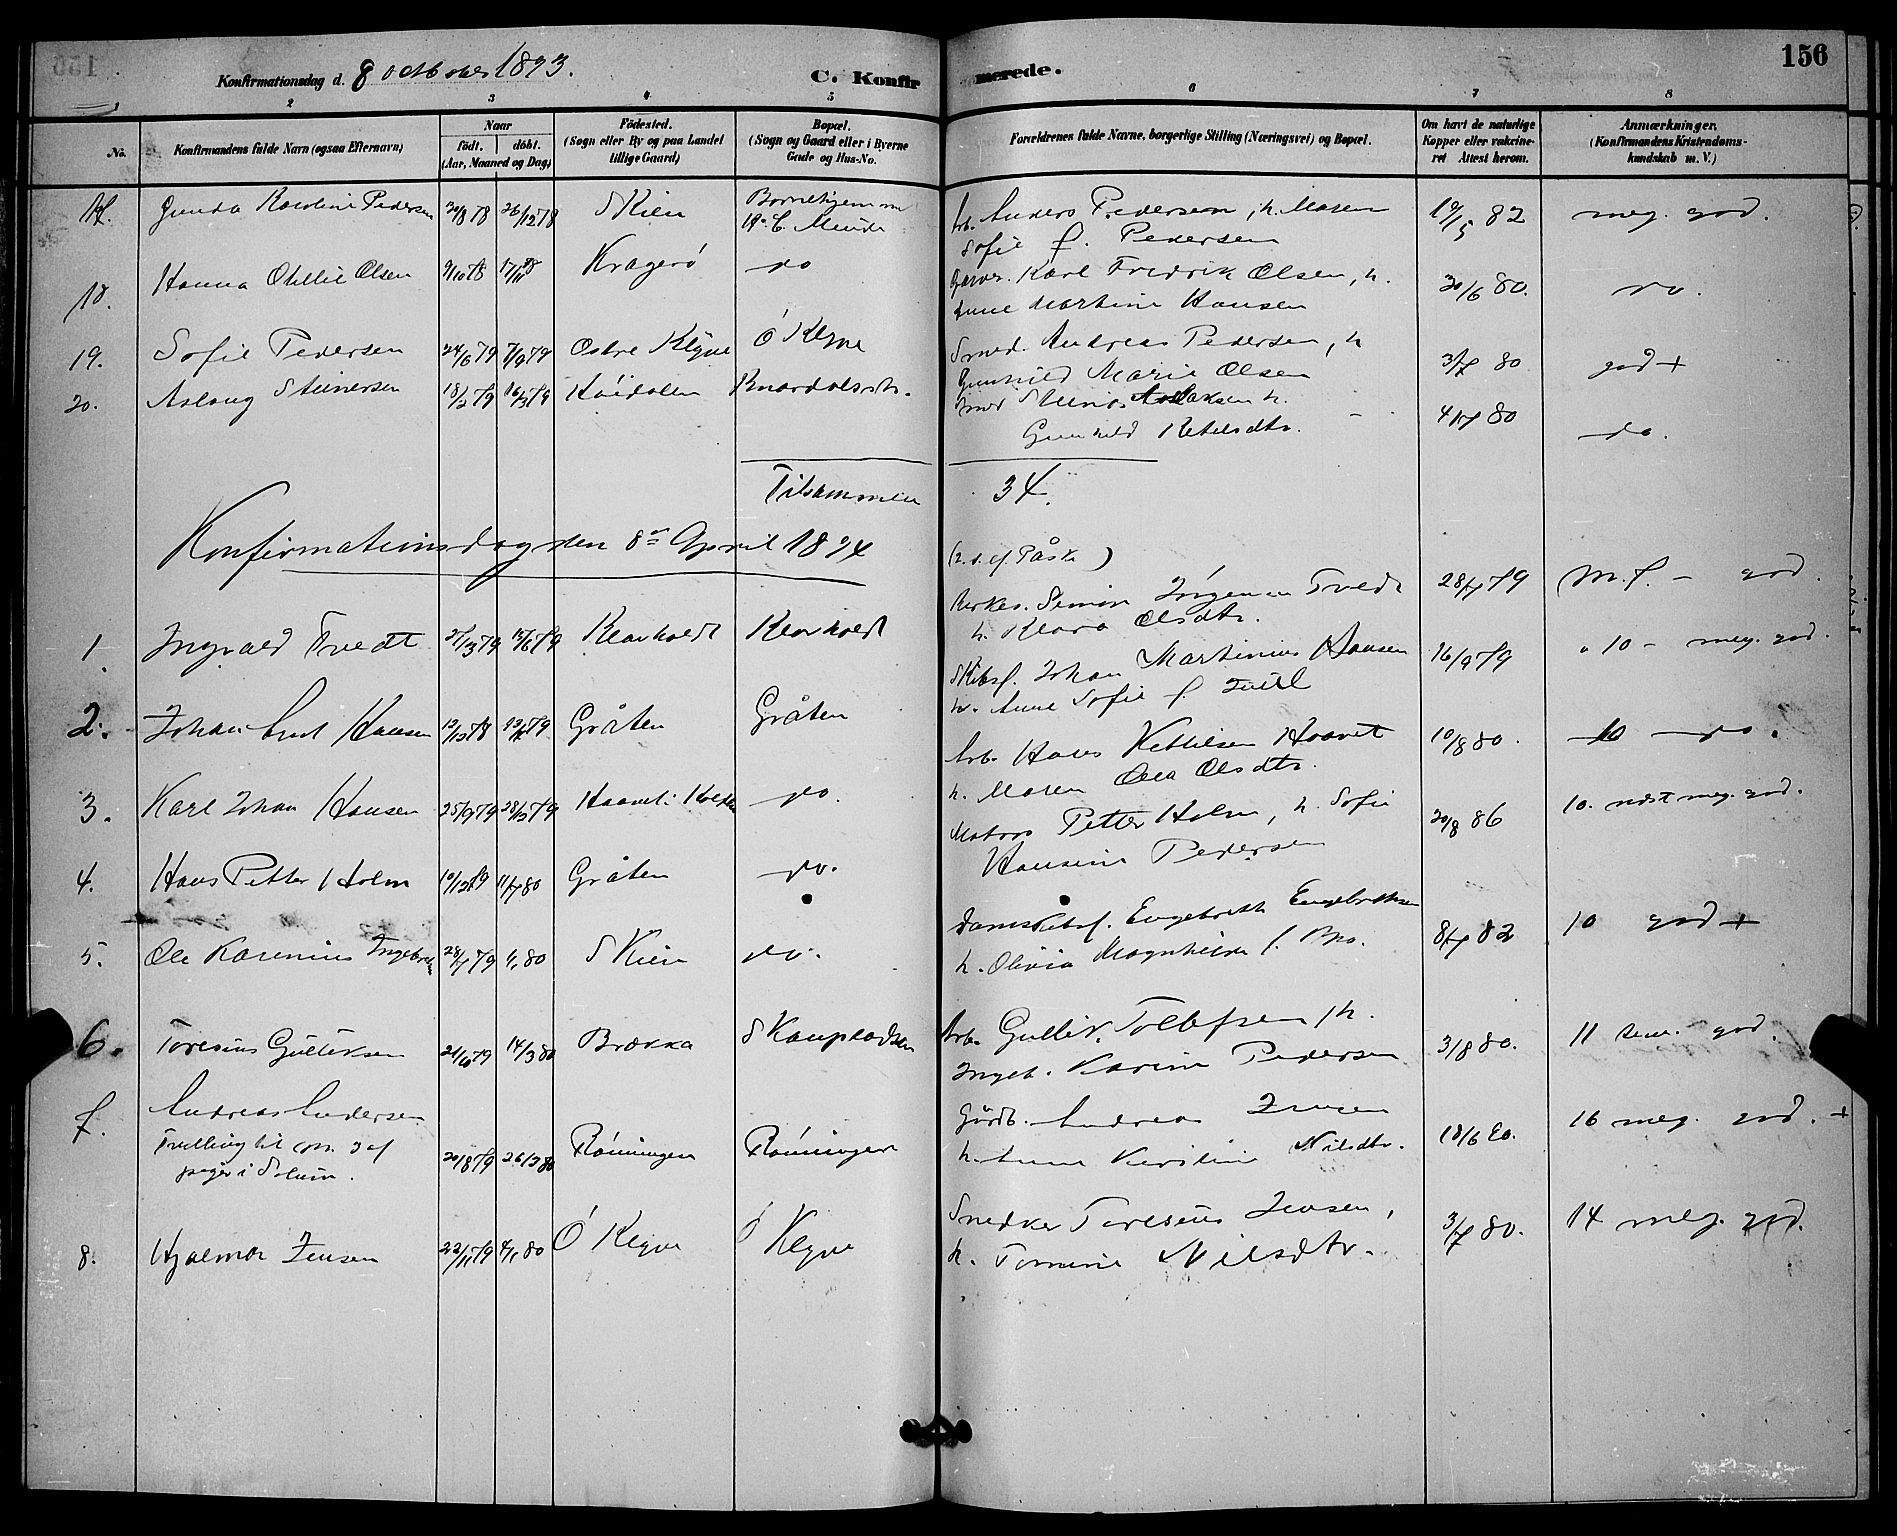 156
Konfirmationsdag d. 8 october 1893.
C. Konfirmerede.
1 2 3 4 5 6 7 8
No.
Konfirmandens fulde Navn (ogsaa Efternavn)
Naar
födt. döbt.
(Aar, Maaned og Dag)
Födested.
(Sogn eller By og paa Landet
tillige Gaard)
Bopæl.
(Sogn og Gaard eller i Byerne
Gade og Hus-No.
Forældrenes fulde Navne, borgerlige Stilling (Næringsvei) og Bopæl.
Om havt de naturlige
Kopper eller vakcine-
ret Attest herom.
Anmærkninger.
(Konfirmandens Kristendoms-
kundskab m. V.)
17. Gunda Karoline Pedersen 30/8 78 26/12 78 Skien
Arb. Anders Pedersen, h. Maren
Sofie f. Pedersen
19/5 82 meg. god.
18. Hanna Otellie Olsen 9/10 78 17/11 78 Kragerö do
Garver. Karl Fredrik Olsen, h.
Anne Martine Hansen
30/6 80. do.
19. Sofie Pedersen 24/6 79 7/9 79 Ostre Klyve Ó Klyve
Smed. Andreas Pedersen, h
Gunhild Marie Olsen
3/7 80 god +
20. Aslaug Steinersen 18/2 79 16/3 79 Knardalsstr.
Gunhild Ketilsdtr.
4/7 80 do.
Tilsammen 34.
Konfirmationsdag den 8de April 1894
(2. s. ef. Påske)
1. Ingvald Tvedt 27/3 79 15/6 79 Klovholdt Klovholdt
Kirkes. Simon Jörgensen Tvedt
h. Klara Olsdtr.
28/7 79 M. f. - god.
2. Johan Hansen 12/12 78 Gråten Gråten
Skibsf. Johan Martinius Hansen
h. Anne Sofie f.
16/9 79 " 10 - meg. god.
3. Karl Johan Hansen 25/9 79 28/12 79 do.
Arb. Hans Kettilsen Haavet
h. Maren Olea Olsdtr.
10/8 80. 10 do.
4. Hans Petter Holm 10/12 79 11/7 80 Gråten do.
Matros Petter Holm, h. Sofie
Hansine Pedersen
20/8 86 10. ndst meg. god.
5. Ole Karenius Ingebretsen 28/7 79 Skien do.
Damskibsf. Engebrekt Engebretsen
h. Olivia Magnhilde f. Bro.
8/7 82 10 god +
6. Toresius Gulliksen 21/10 79 14/3 80 Brekka
Arb. Gullik Tollefsen, h.
Ingeb. Karine Pedersen
3/8 80. 11 tem. god.
7. Andreas Andersen
Tvilling til
i Solum.
20/8 79 26/3 80 Rönningen Rönningen
Gårdb. Andreas Jensen
h. Anne Kirstine Nilsdtr.
18/6 80. 16 meg. god. +
8. Hjalmar Jensen 22/11 79 4/1 80 Ö Klyve Ö Klyve
Snedker Toresius Jensen,
h. Tomine Nilsdtr.
3/7 80. 14 meg. god.